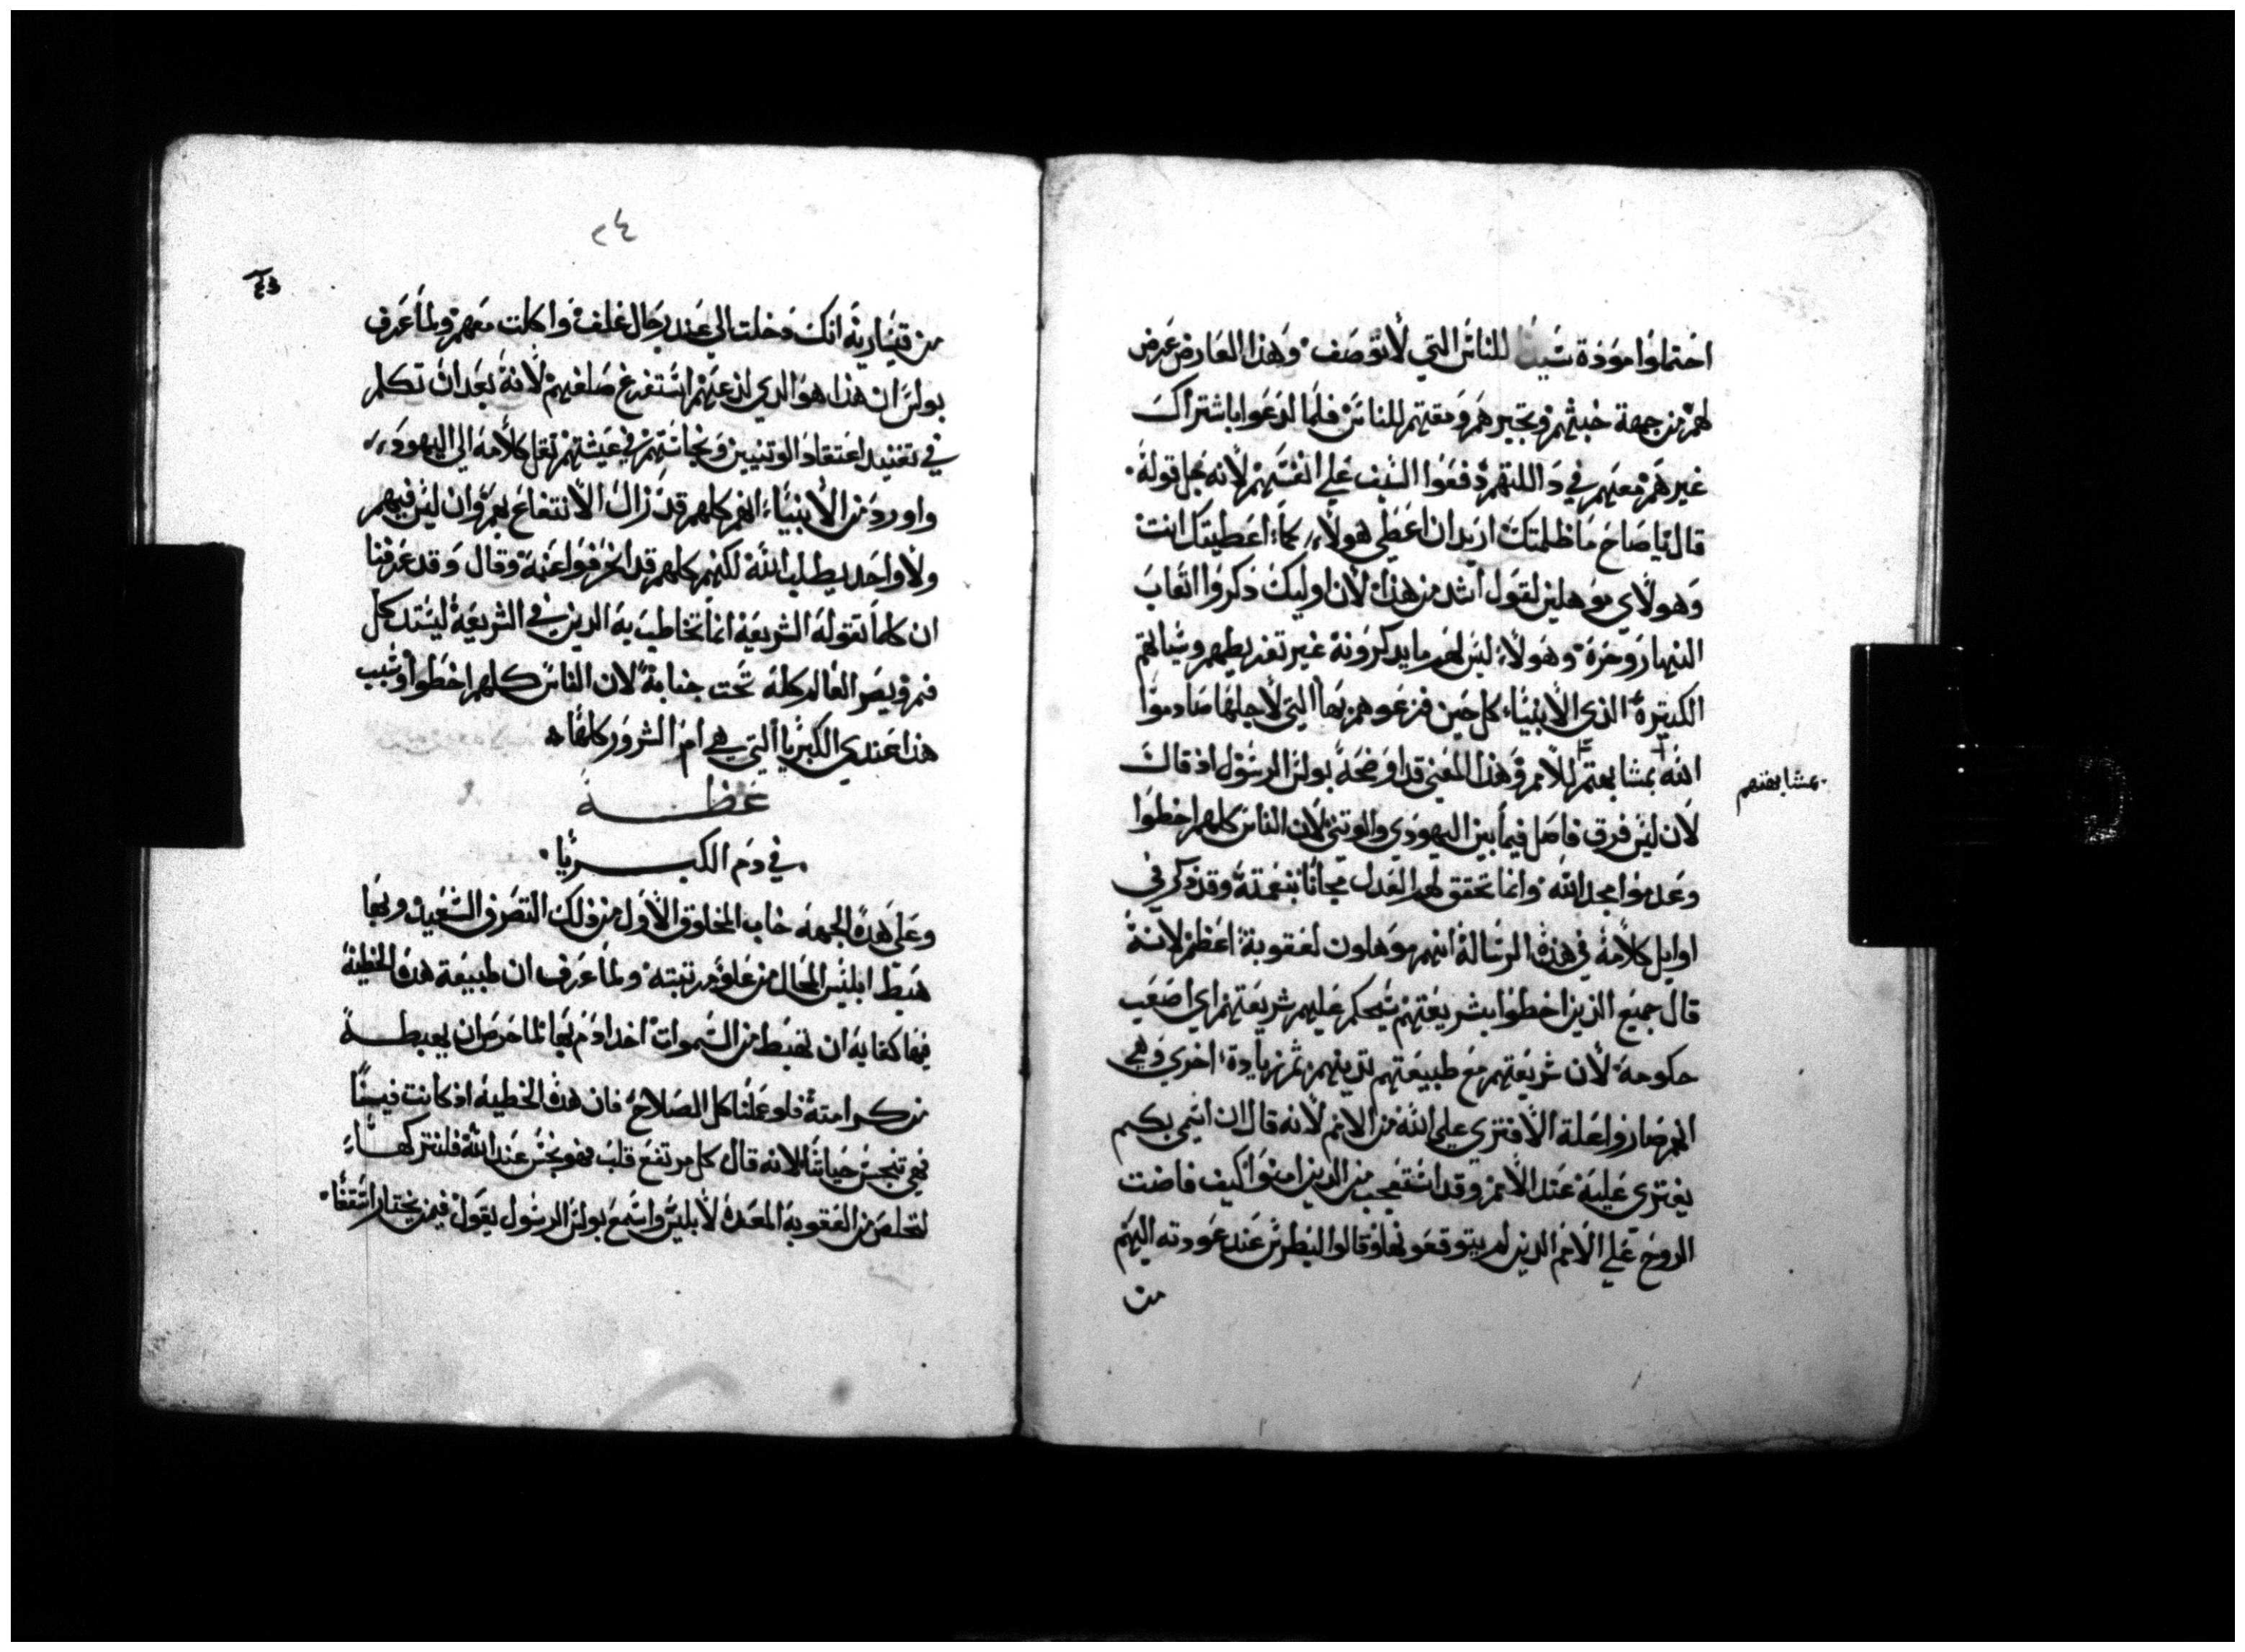 احتملوا موذة شيئا للناس التي لا توصف وهذا العارض عرض
لهم من جهة خبثهم وتجبرهم ومقتهم للناس فلما لدعوا باشتراك
غيرهم معهم في دا اللتهم دفعوا السيف علي انفسهم لانه بجل قوله
قال يا صاح ما ظلمتك اريد ان اعطي هولاء كما اعطيتك انت
وهولاي موهلين لقول اشد من هذا لان اوليك ذكروا اتعاب
النهار وحره وهولاء ليس لهم ما يدكرونه غير تفريطهم وسيالتهم
الكتيرة الذي الانبياء كل حين قرعوهم بها التي لاجلها صادموا
الله بمشابهتهم للامم وهذا المعني قد اوضحه بولس الرسول اذ قال
بمشابهتهم
لان ليس فرق فاصل فيما بين اليهودي والوتني لان الناس كلهم اخطوا
وعدموا مجد الله وانما تحقق لهم العدل مجانا بنعمته وقد ذكر في
اوايل كلامه في هذه الرسالة انهم موهلون لعقوبة اعظم لانه
قال جميع الذين اخطوا بشريعتهم سيحكم عليهم شريعتهم اي اصعب
حكومة لان شريعتهم مع طبيعتهم تدينهم ثم زيادة اخري وهي
انهم صاروا علة الافتري علي الله من الامم لانه قال ان اسمي بكم
يفتري عليه عند الامم وقد استعجب من الدين امنوا كيف فاضت
الروح علي الامم الدين لم يتوقعونها وقالوا لبطرس عند عودته اليهم
من
٢٤
من قيسارية انك دخلت الي عند رجال غلف واكلت معهم ولما عرف
بولس ان هذا هو الدي لدعهم استفرغ صلفهم لانه بعد ان تكلم
في تفنيد اعتقاد الوتنيين ونجاستهم في عيشتهم نقل كلامه الي اليهود
واورد من الانبياء انهم كلهم قد زال الانتفاع بهم وان ليس فيهم
ولا واحد يطلب الله لكنهم كلهم قد انحرفوا عنه وقال وقد عرفنا
ان كلما تقوله الشريعة انما تخاطب به الدين في الشريعة ليستد كل
فم ويصر العالم كله تحت جنابة لان الناس كلهم اخطوا وسبب
هذا عندي الكبريا التي هي ام الشرور كلها
عظة
في دم الكبريا
وعلي هده الجهه خاب المخلوق الاول من ذلك التصرف السعيد وبها
هبط ابليس المحال من علو مرتبته ولما عرف ان طبيعة هده الخطية
فيها كفاية ان تهبط من السموات اخد ادم بها لما حرص ان يهبطه
من كرامته فلو عملنا كل الصلاح فان هده الخطية اذ كانت فينا
فهي تنجس حياتنا لانه قال كل مرتفع قلب فهو نجس عند الله فلنتركها
لنخلص من العقوبة المعدة لابليس واسمع بولس الرسول يقول فيمن يختار اسقفا